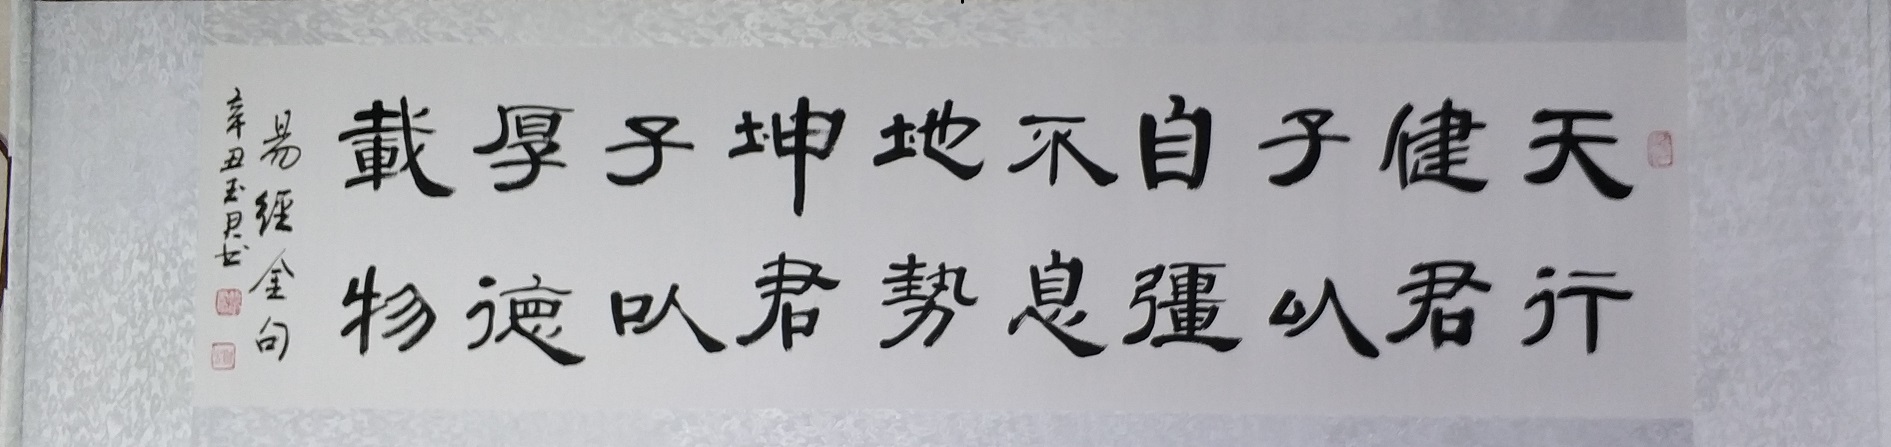 天行
健君
子以
自彊
不息
地勢
坤君
子以
厚德
載物
易經金句
辛丑玉貝书